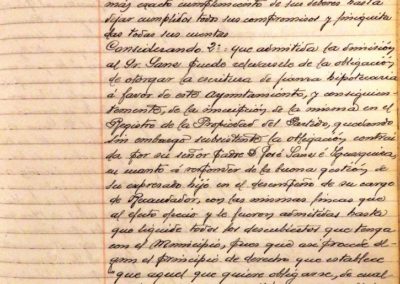 más exacto cumplimiento de sus deberes hasta
dejar cumplidos todos sus compromisos y finiquita
das todas sus cuentas
Considerando 2º: que admitida la dimisión
al Sr. Sanz puede relevarsele de la obligación
de otorgar la escritura de fianza hipotecaria
á favor de este Ayuntamiento, y consiguien-
temente, de la inscripción de la misma en el
Registro de la Propiedad del Partido, quedando
sin embargo subsistente la obligación contrai
da por su señor padre D. José Sanz é
en cuanto á responder de la buena gestión de
su expresado hijo en el desempeño de su cargo
de Recaudador, con las mismas fincas que
al efecto ofreció y le fueron admitidas hasta
que liquide todos los descubiertos que tenga
con el Municipio, pues que así procede se-
gun el principio de derecho que establece
"que aquel que quiere obligarse, de cual